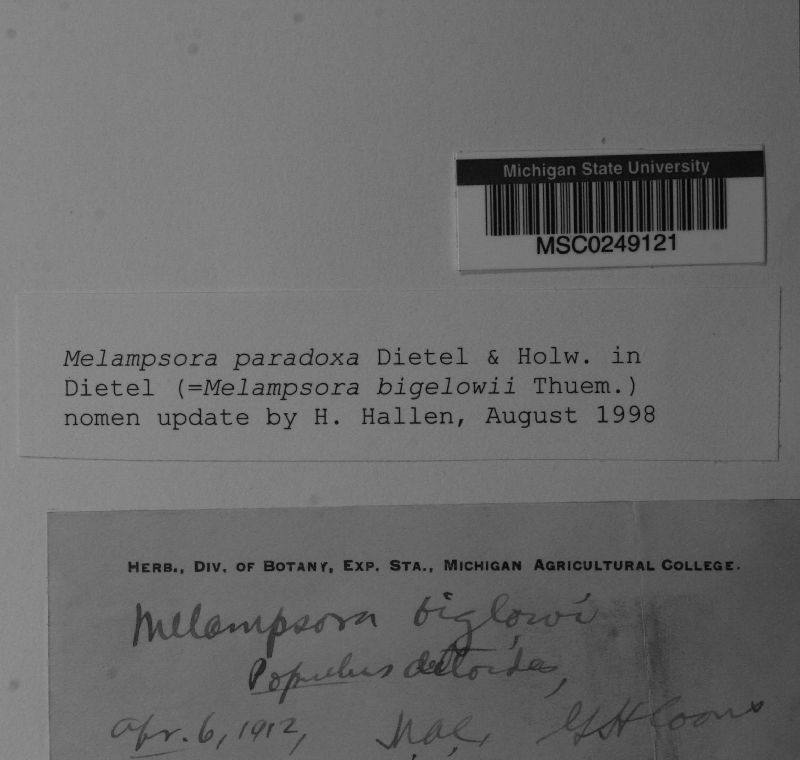 Michigan State University
MSC0249121
Melampsora paradoxa Dietel & Holw. in
Dietel (=Melampsora bigelowii Thuem.)
nomen update by H. Hallen, August 1998
HERB., DIV. OF BOTANY, EXP. STA., MICHIGAN AGRICULTURAL COLLEGE.
Melampsora biglowi
Populus deltoides,
Apr. 6, 1912, GH Coons